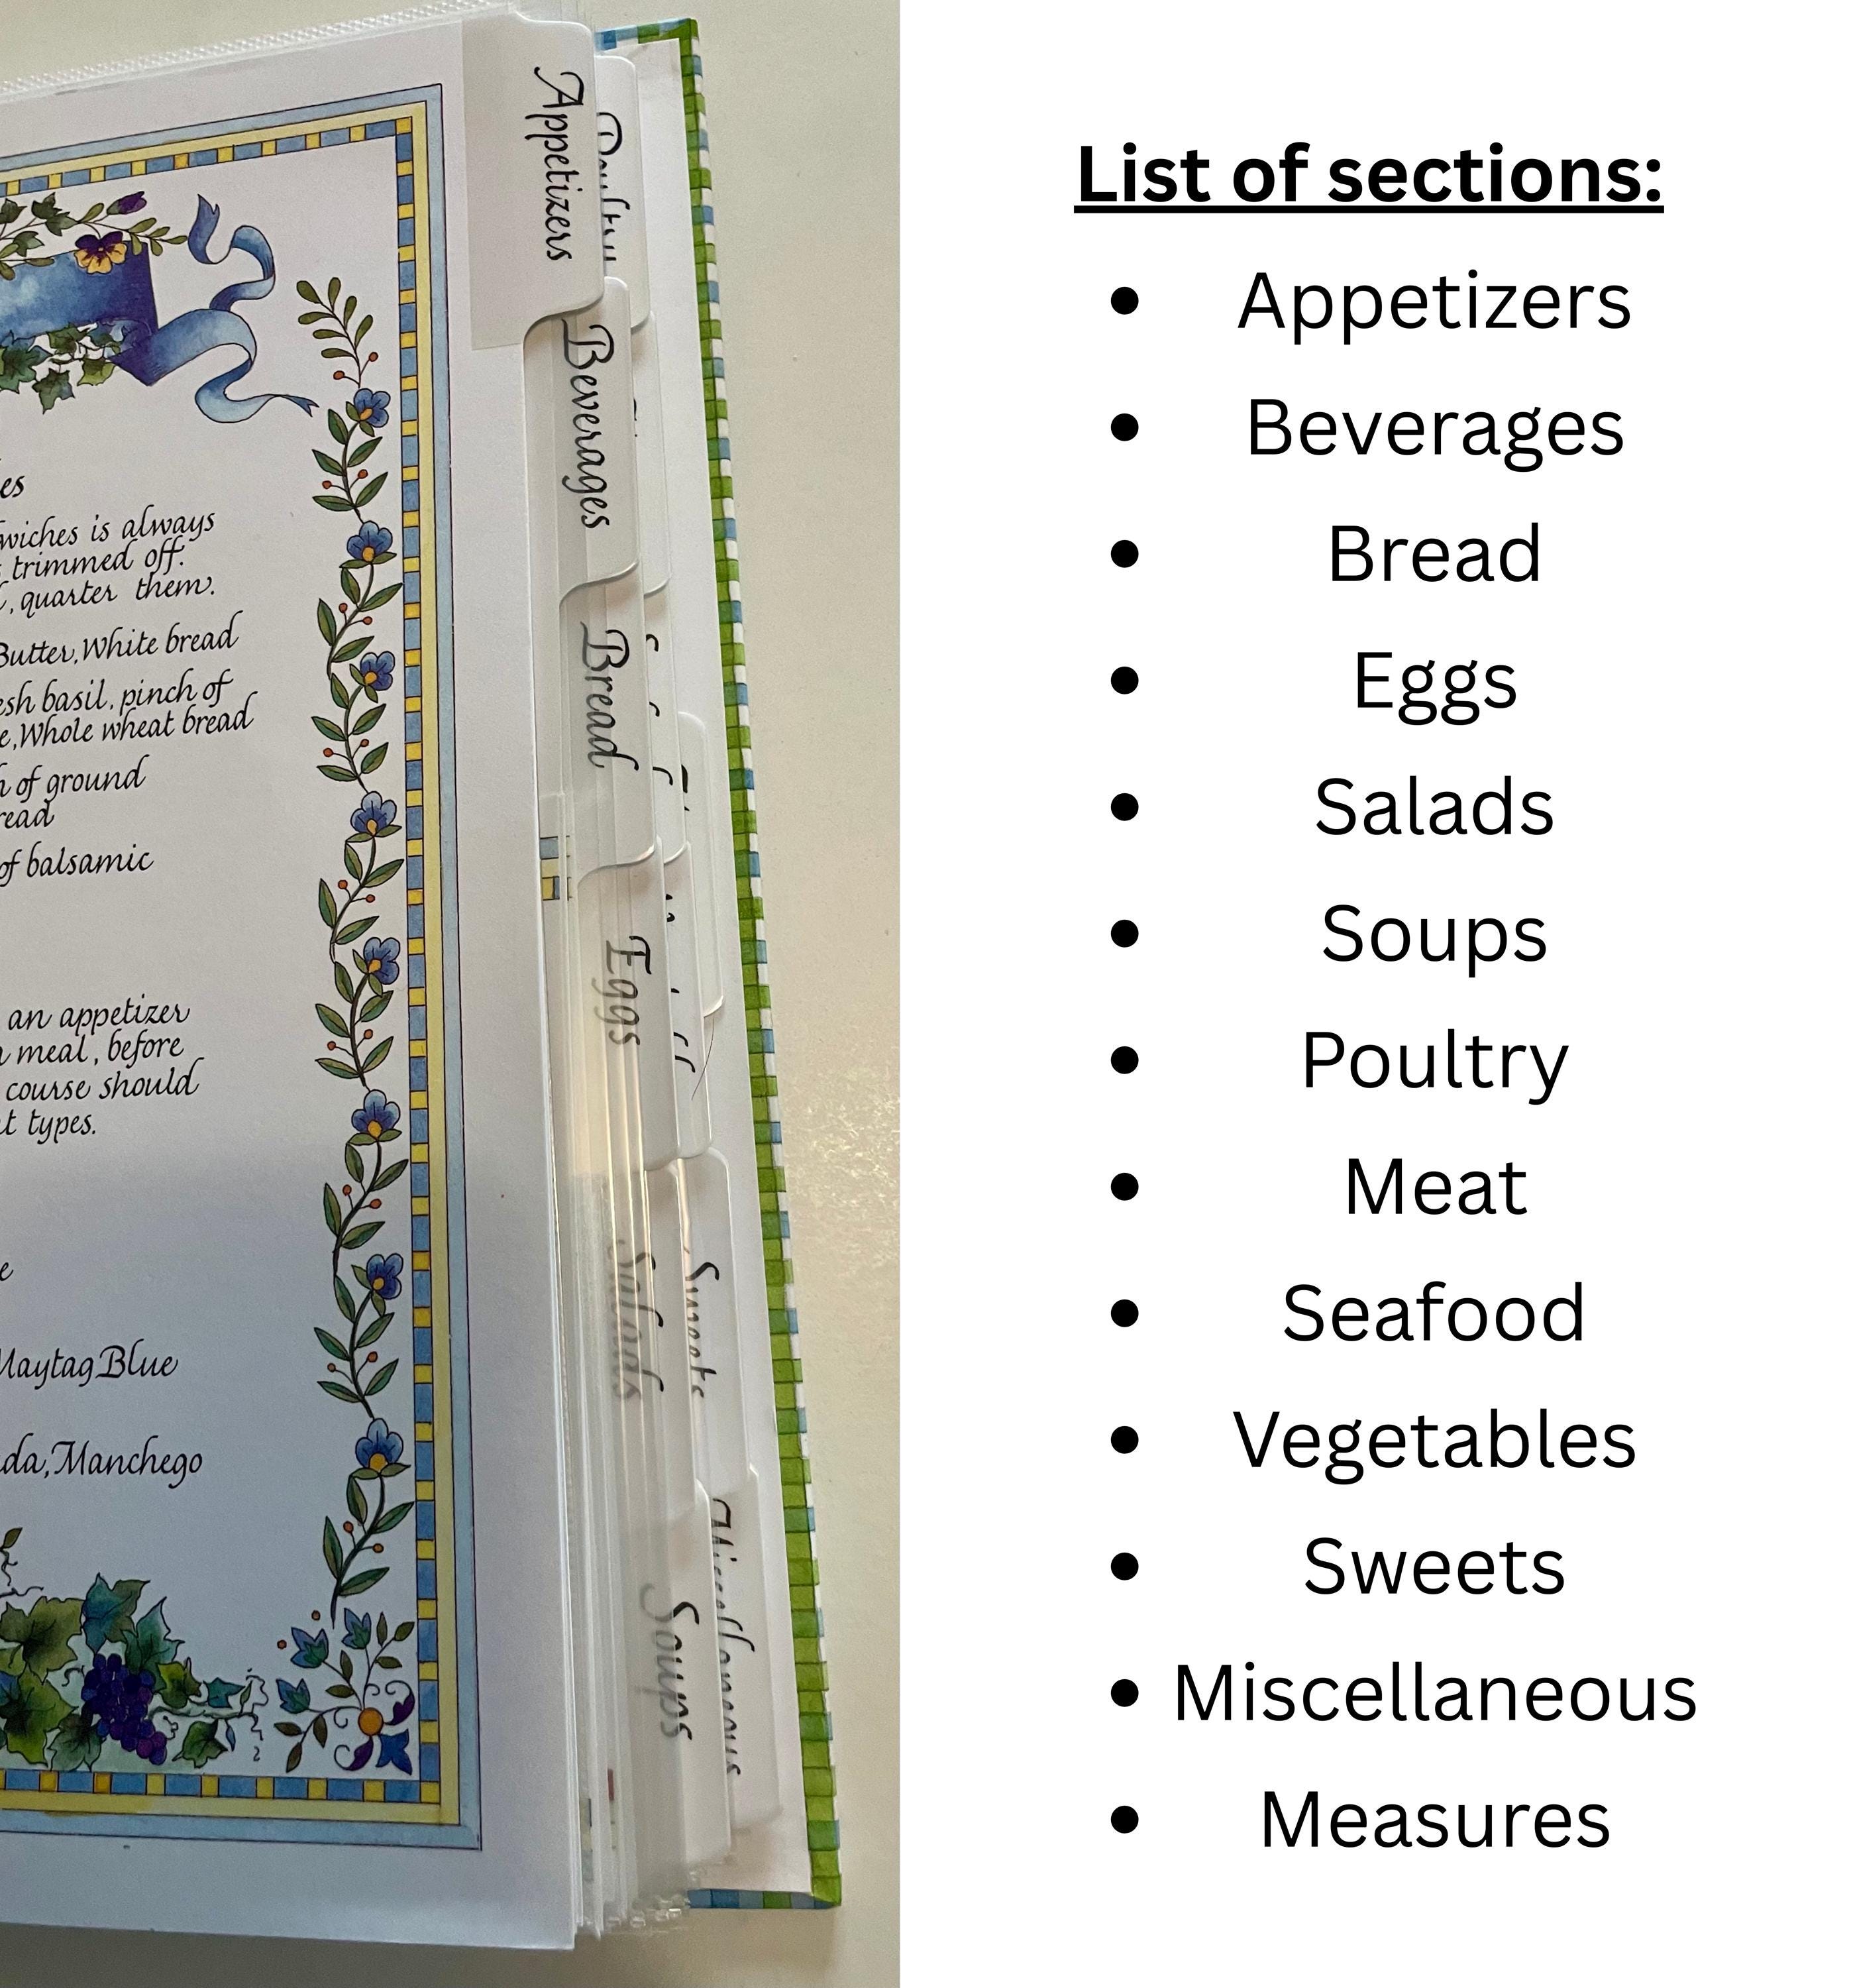 es
wiches is always
trimmed off.
, quarter them.
Butter, White bread
esh basil, pinch of
e, Whole wheat bread
h of ground
read
of balsamic
an appetizer
meal, before
course should
t types.
e
Maytag Blue
da, Manchego
Appetizers
Beverages
Bread
Eggs
Salads
Soups
Poultry
Sweets
Miscellaneous
List of sections:
• Appetizers
• Beverages
• Bread
• Eggs
• Salads
• Soups
• Poultry
• Meat
• Seafood
• Vegetables
• Sweets
• Miscellaneous
• Measures